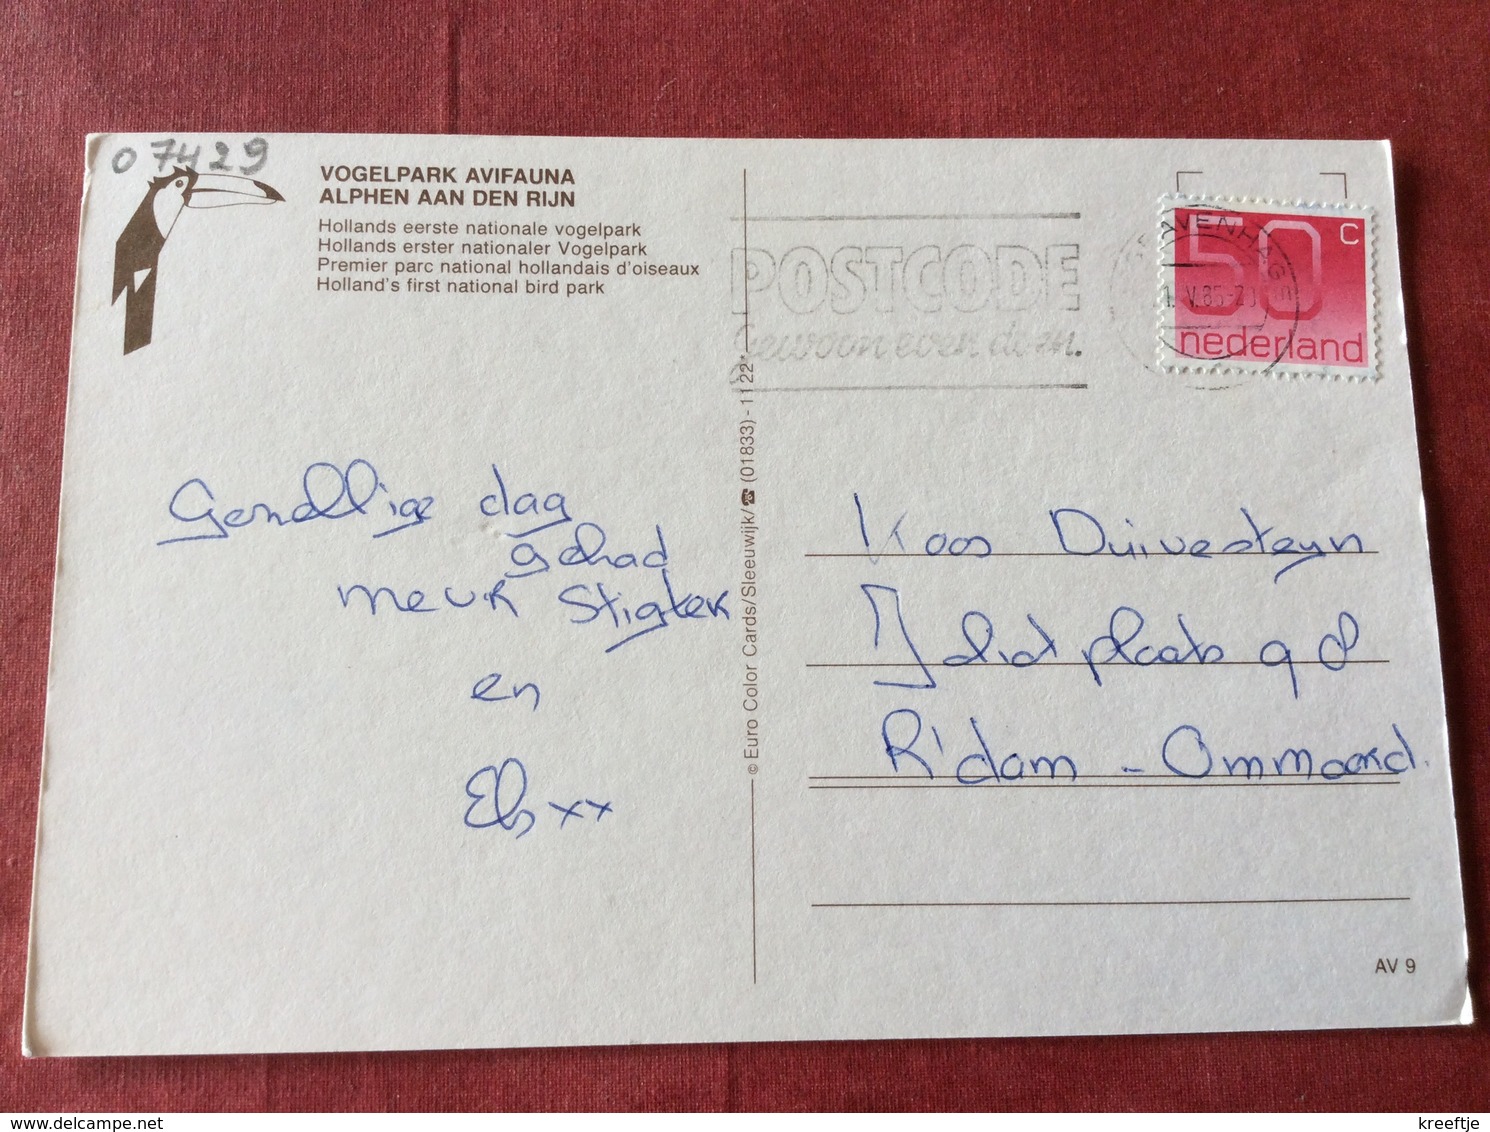 07429
VOGELPARK AVIFAUNA
ALPHEN AAN DEN RIJN
Hollands eerste nationale vogelpark
Hollands erster nationaler Vogelpark
Premier parc national hollandais d'oiseaux
Holland's first national bird park
POSTCODE
gewoon even doen.
GRAVENHAGE
V.85-20
50 c
nederland
Gezellige dag
gehad
en
Els xx
© Euro Color Cards/Sleeuwijk/☎ (01833) - 1122
Koos Duivesteyn
plaats 98
R'dam - Ommoord.
AV 9
kreeftje